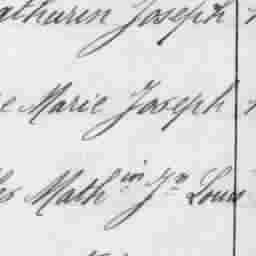 athurin Joseph
e Marie Joseph
Math in Jn Louis